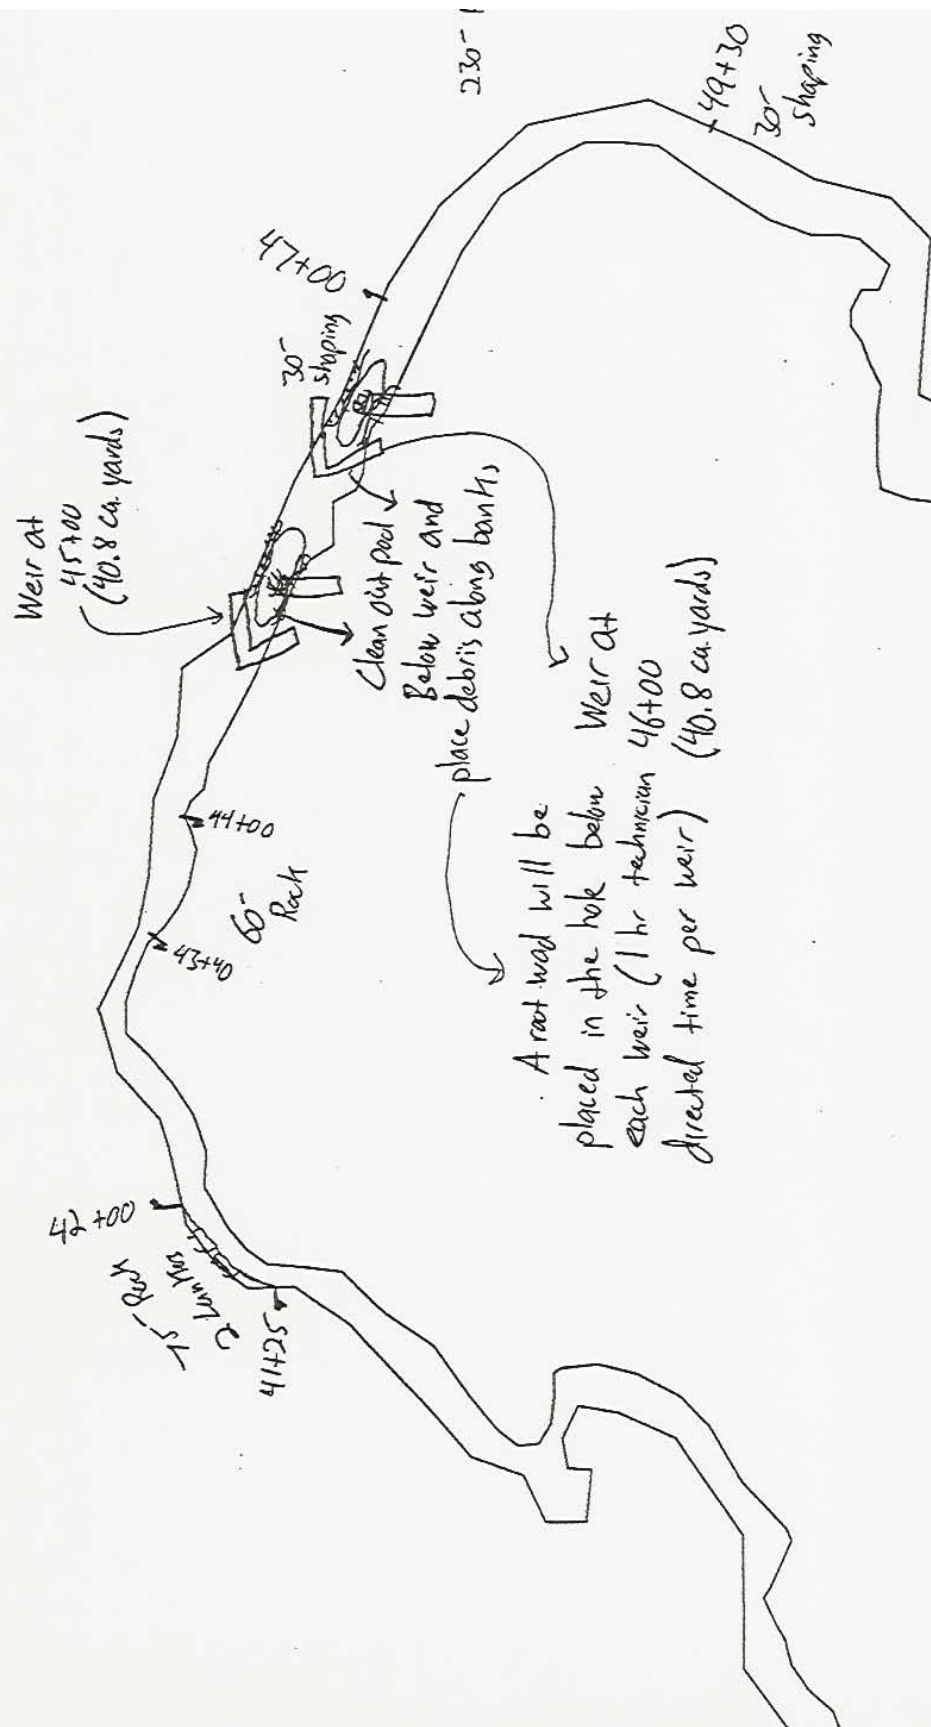 42+00
75- Rock
2 Lunkers
41+25
43+40
60-
Rock
44+00
Weir at
45+00
(40.8 cu. yards)
Clean out pool
Below weir and
place debris along banks
A root wad will be
placed in the hole below
each weir (1 hr technician
directed time per weir)
Weir at
46+00
(40.8 cu. yards)
30-
shaping
47+00
230-
49+30
30-
shaping